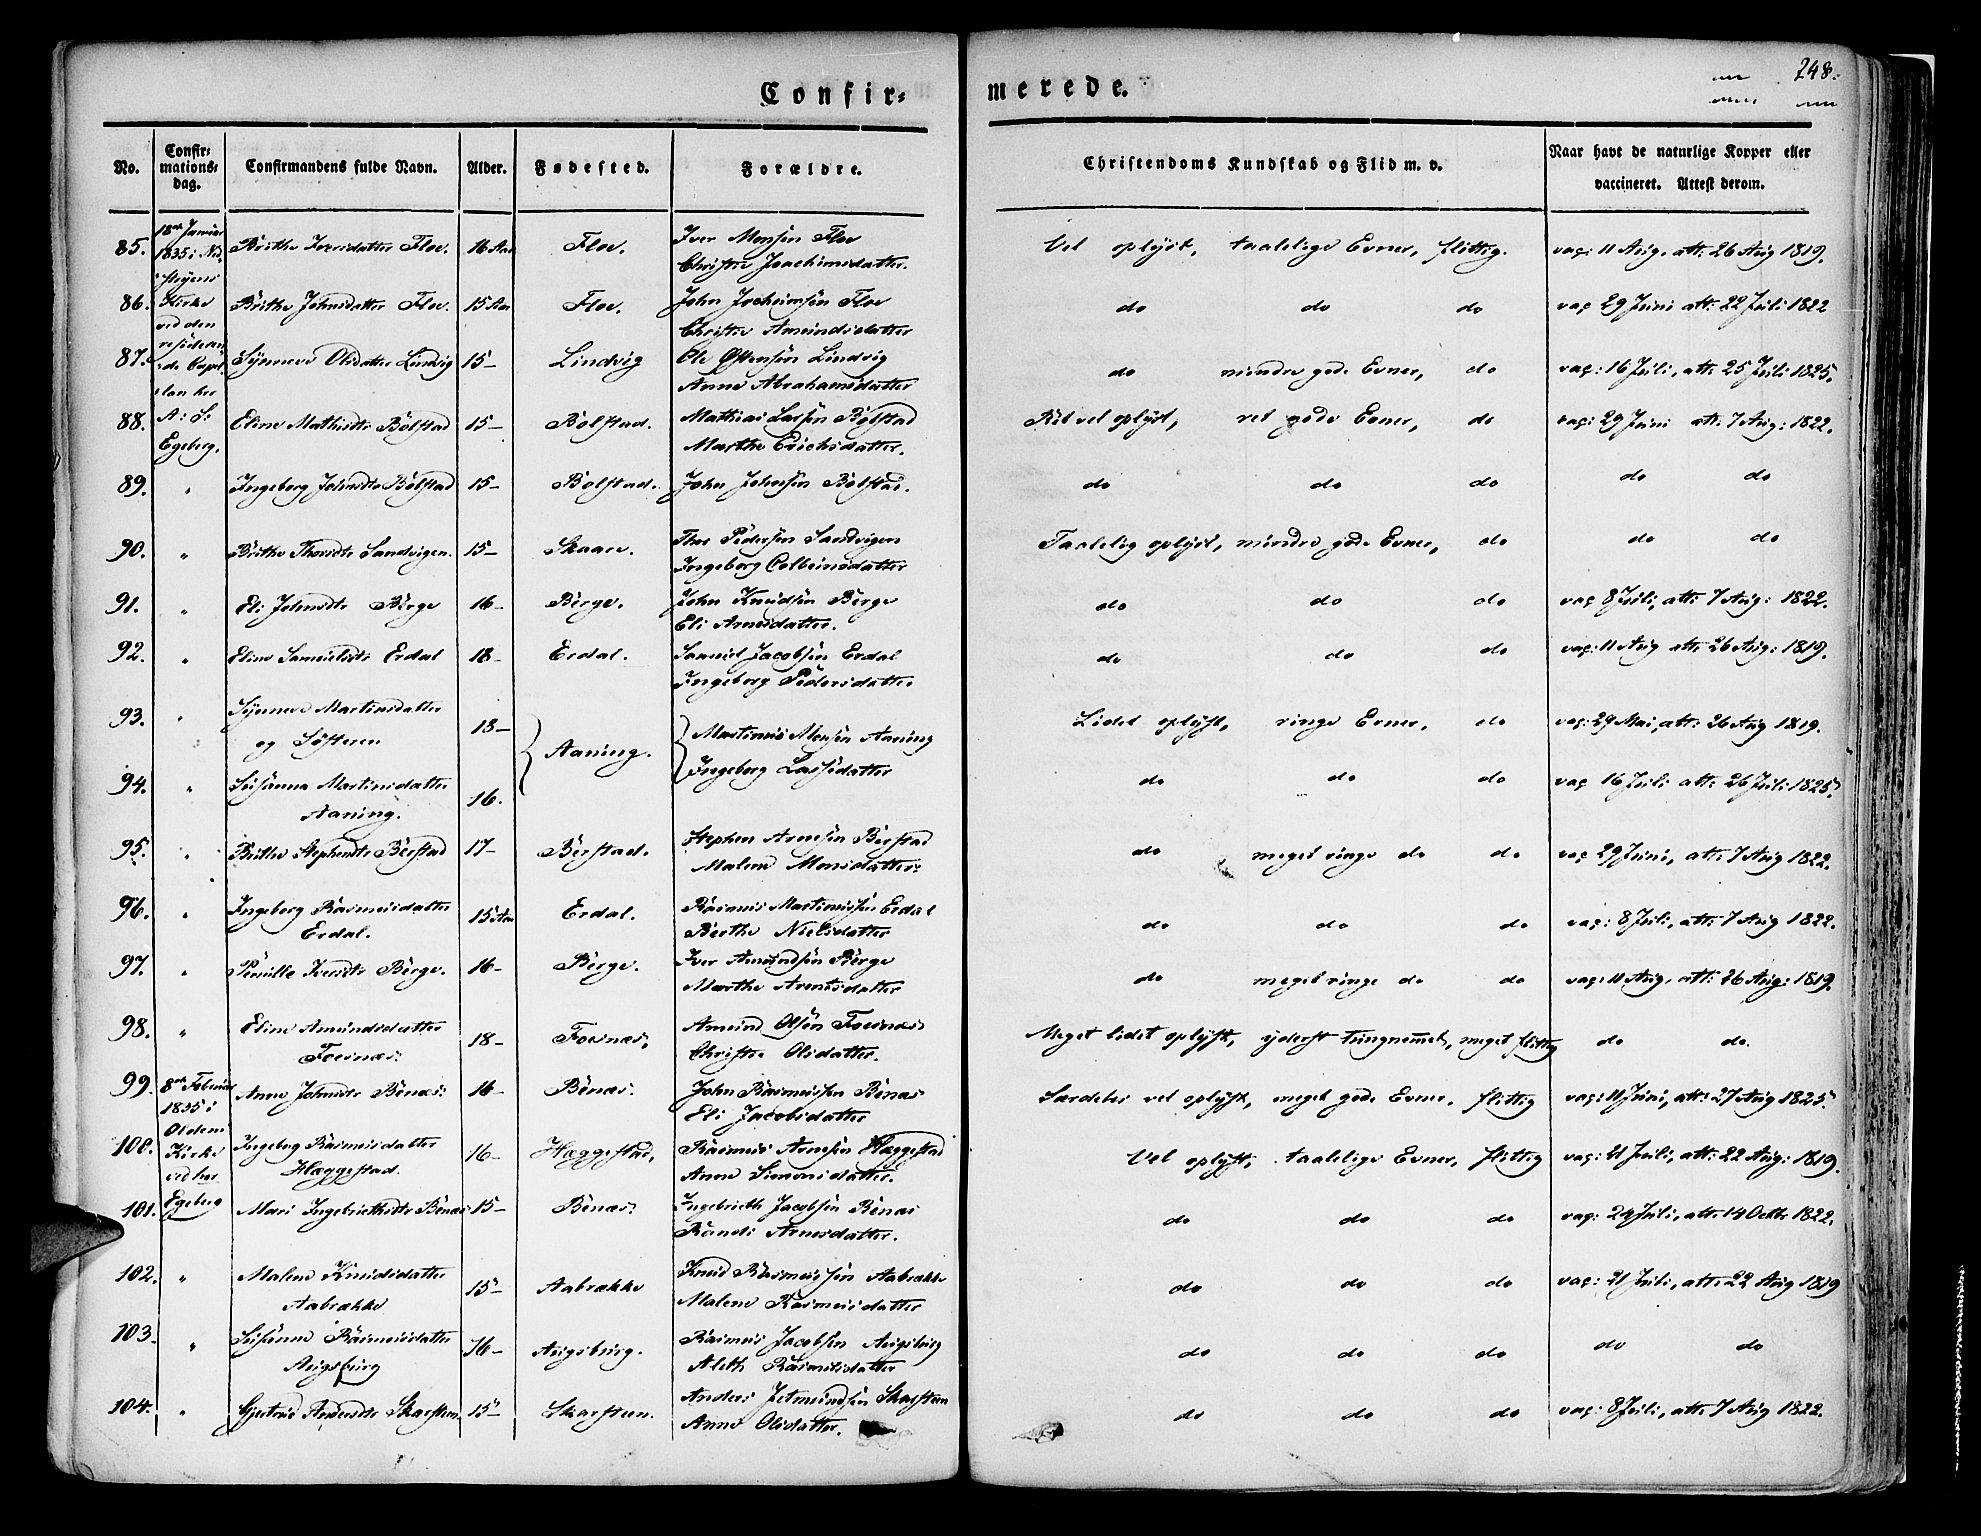 248.
Confir=
merede.
No.
Confir=
mations=
dag.
Confirmandens fulde Navn.
Alder.
Fødested.
Forældre.
Christendoms Kundskab og Flid m. v.
Naar havt de naturlige Kopper eller
vaccineret. Attest derom.
18de Januar
1835 i Ned-
strÿens
Kirke
ved den
resideren
de Capel
lan her
A: S:
Egeberg.
85. Brithe Iversdatter Floe. 16 Aar Floe. Iver Monsen Floe
Christie Joachimsdatter.
Vel oplyst, taalelige Evner, flittig. vac: 11 Aug. att: 26 Aug 1819.
86. Brithe Johnsdatter Floe. 15 Aar Floe. John Jocheimsen Floe
Christie Amundsdatter
do do do vac 29 Juni att: 22 Juli 1822
87. Synneve Olsdatter Lindvig 15- Lindvig Ole Østensen Lindvig
Anne Abrahamsdatter
do mindre gode Evner, do vac: 16 Juli, att: 25 Juli 1825.
88. Eline Mathisdtr Bolstad 15- Bolstad. Mathias Larsen Bolstad
Marthe Erichsdatter.
Ret vel oplyst, ret gode Evner, do vac: 29 Juni att: 7 Aug: 1822.
89. " Ingeborg Johnsdtr Bolstad 15- Bolstad. John Johnsen Bolstad.
do do do do do
90. " Brithe Thorsdtr Sandvigen. 15- Skaare. Thor Pedersen Sandvigen
Ingeborg Colbeinsdatter
Taalelig oplyst, mindre gode Evner, do do do
91. " Eli Johnsdtr Berge 16- Berge. John Knudsen Berge
Eli Arnesdatter.
do do do vac 8 Juli, att: 7 Aug: 1822.
92. " Eline Samuelsdtr Erdal 18- Erdal. Samuel Jacobsen Erdal
Ingeborg Pedersdatter
do do do vac: 11 Aug att: 26 Aug: 1819.
93. " Synneve Martinusdatter
og Søsteren
18- Aaning. Martinus Monsen Aaning
Ingeborg Lassedatter
Lidet oplyst, ringe Evner, do vac: 29 Mai, att: 26 Aug 1819.
94. " Susanna Martinsdatter
Aaning.
16.
do do do vac 16 Juli att: 26 Juli 1825.
95. " Brithe Stephensdtr Berstad 17- Berstad. Stephen Arnesen Berstad
Malene Monsdatter.
do meget ringe do do vac 29 Juni, att: 7 Aug 1822.
96. " Ingeborg Rasmusdatter
Erdal.
15 Aar Erdal. Rasmus Martinussen Erdal
Berthe Nielsdatter
do do do vac: 8 Juli, att: 7 Aug 1822.
97. " Pernille Iversdtr Berge. 16- Berge. Iver Amundsen Berge
Marthe Arentsdatter
do meget ringe do do vac: 11 Aug, att: 26 Aug: 1819.
98. " Eline Amundsdatter
Foesnæs.
18- Foesnæs. Amund Olsen Foesnæs
Christie Olsdatter.
Meget lidet oplyst, yderst tungnemmet, meget flittig do do.
8de Februar
1835 i
Oldens
Kirke
ved hr
Egeberg
99. Anne Johnsdtr Benæs. 16- Benæs. John Rasmussen Benæs
Eli Jacobsdatter
Særdeles vel oplyst, meget gode Evner, flittig vac: 11 Juni, att: 27 Aug 1825.
100. Ingeborg Rasmusdatter
Hæggestad.
16- Hæggestad. Rasmus Arnesen Hæggestad
Anne Simonsdatter.
Vel oplyst, taalelige Evner, flittig vac: 21 Juli, att: 22 Aug: 1819.
101. Mari Ingebriethsdtr Benæs 15- Benæs. Ingebrieth Jacobsen Benæs
Randi Arnesdatter.
do do do vac: 24 Juli, att: 14 Octbr 1822.
102. " Malene Knudsdatter
Aabrække
15- Aabrække Knud Rasmussen Aabrække
Malene Rasmusdatter
do do do vac: 21 Juli, att: 22 Aug 1819
103. " Susanne Rasmusdatter
Augsburg
16- Augsburg. Rasmus Jacobsen Augsburg
Aleth Rasmusdatter
do do do do do
104. " Gjertrud Andersdtr Skarsteen. 15- Skarsteen. Anders Jetmundsen Skarsteen
Anne Olsdatter.
do do do vac: 8 Juli, att: 7 Aug 1822.